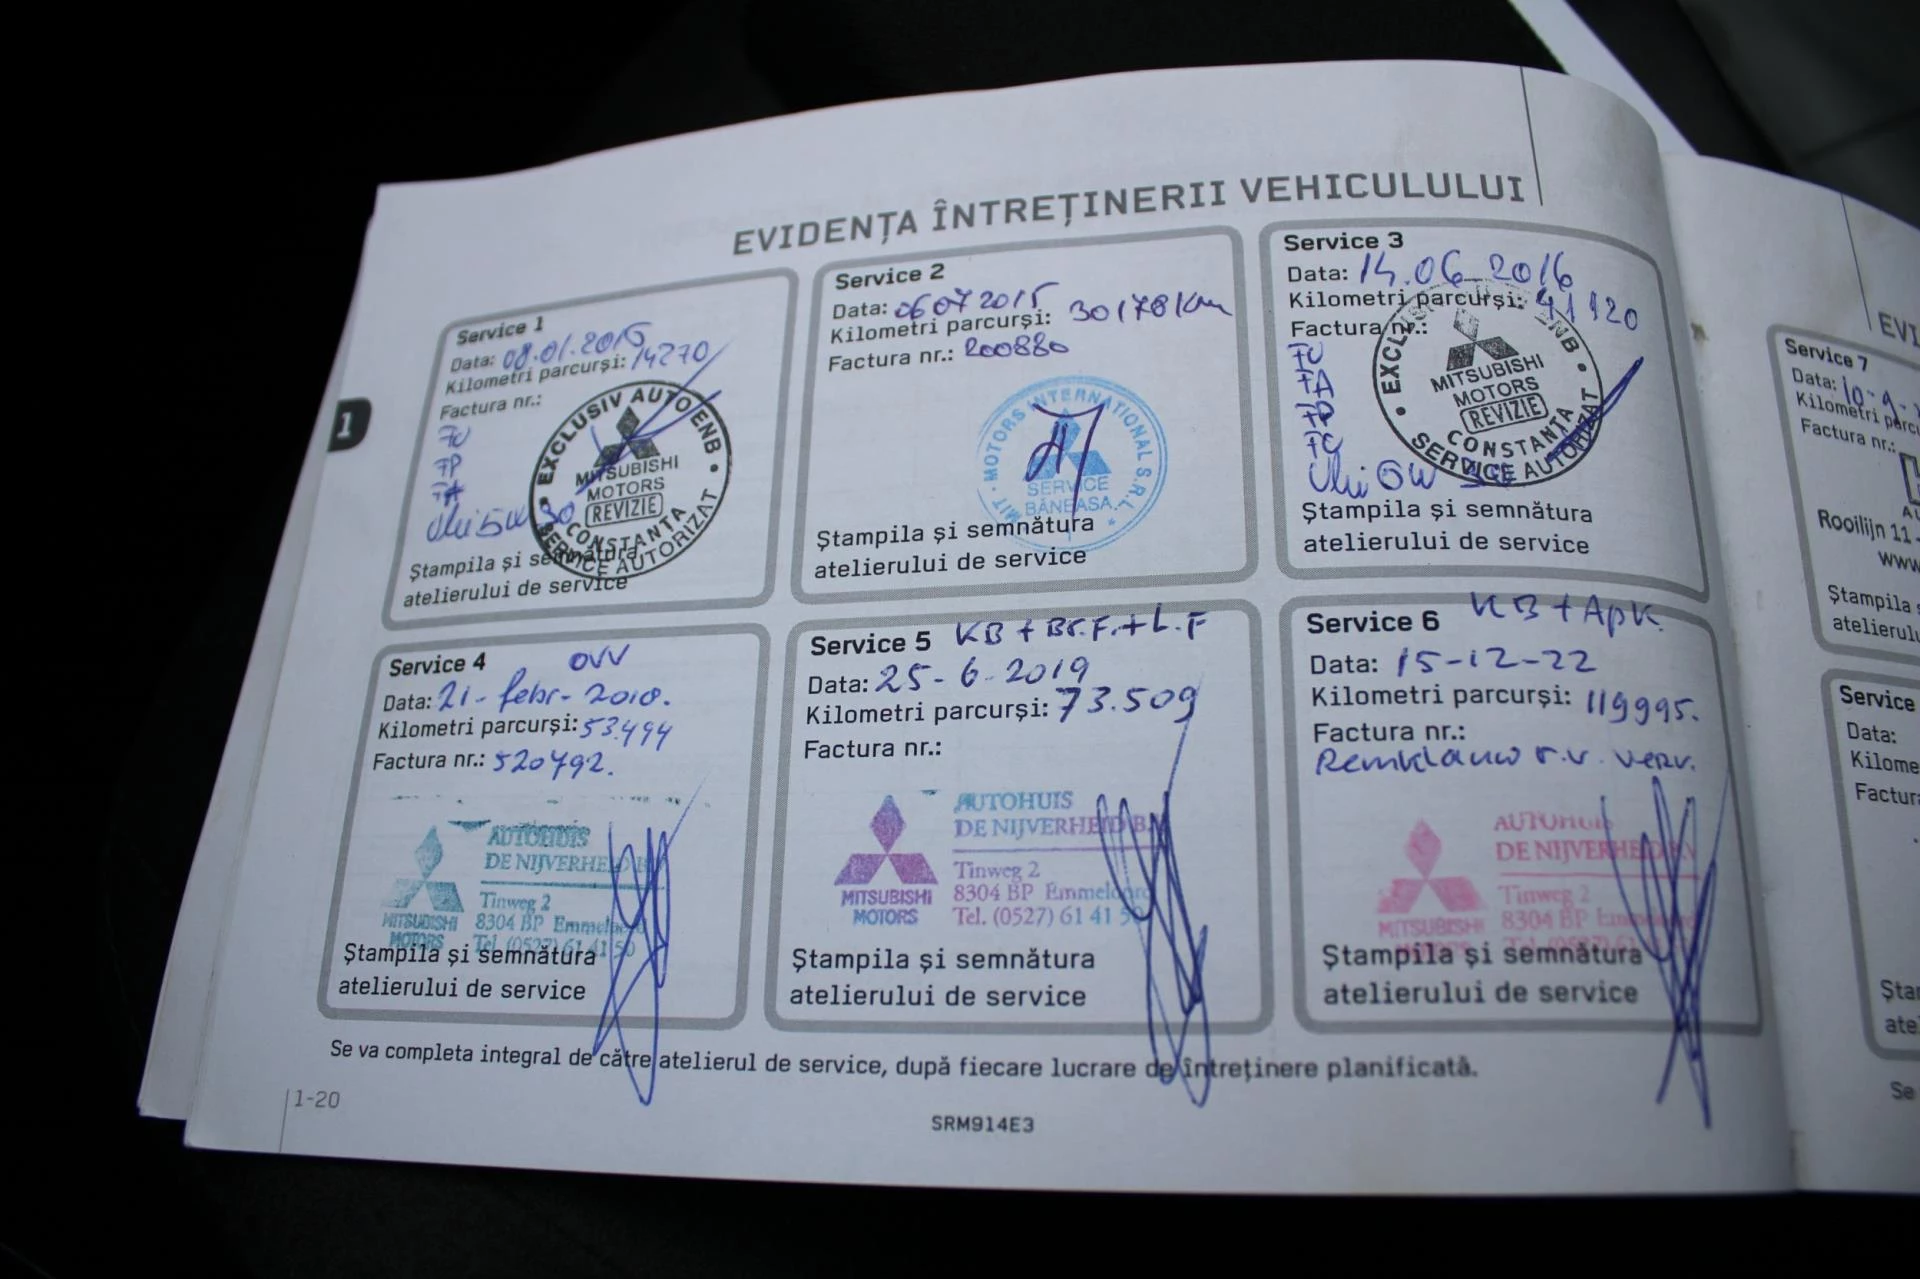 EVIDENȚA ÎNTREȚINERII VEHICULULUI
1
Service 1
Data: 08.01.2015
Kilometri parcurși: 14270
Factura nr.:
FU
FP
FA
Ulei 5W30
EXCLUSIV AUTO ENB
MITSUBISHI
MOTORS
REVIZIE
CONSTANȚA
SERVICE AUTORIZAT
Ștampila și semnătura
atelierului de service
Service 2
Data: 06 07 2015
Kilometri parcurși: 30178 km
Factura nr.: 200880
MIT MOTORS INTERNATIONAL S.R.L.
SERVICE
BĂNEASA
Ștampila și semnătura
atelierului de service
Service 3
Data: 14.06.2016
Kilometri parcurși: 41120
Factura nr.:
FU
FA
FP
FC
Ulei 5W
EXCLUSIV AUTO ENB
MITSUBISHI
MOTORS
REVIZIE
CONSTANȚA
SERVICE AUTORIZAT
Ștampila și semnătura
atelierului de service
Service 4 OVV
Data: 21-febr-2018.
Kilometri parcurși: 53.494
Factura nr.: 520792.
AUTOHUIS
DE NIJVERHEID B.V.
Tinweg 2
8304 BP Emmeloord
Tel. (0527) 61 41 50
MITSUBISHI
MOTORS
Ștampila și semnătura
atelierului de service
Service 5 KB + Br.F. + L.F
Data: 25-6-2019
Kilometri parcurși: 73.509
Factura nr.:
AUTOHUIS
DE NIJVERHEID B.V.
Tinweg 2
8304 BP Emmeloord
Tel. (0527) 61 41 50
MITSUBISHI
MOTORS
Ștampila și semnătura
atelierului de service
Service 6 KB + Apk.
Data: 15-12-22
Kilometri parcurși: 119995.
Factura nr.:
Remklauw r.v. verv.
AUTOHUIS
DE NIJVERHEID B.V.
Tinweg 2
8304 BP Emmeloord
MITSUBISHI
MOTORS
Ștampila și semnătura
atelierului de service
Se va completa integral de către atelierul de service, după fiecare lucrare de întreținere planificată.
1-20
SRM914E3
Service 7
Data: 10-9-
Kilometri
Factura nr.:
Rooilijn 11
www
Ștampila
Service
Data: